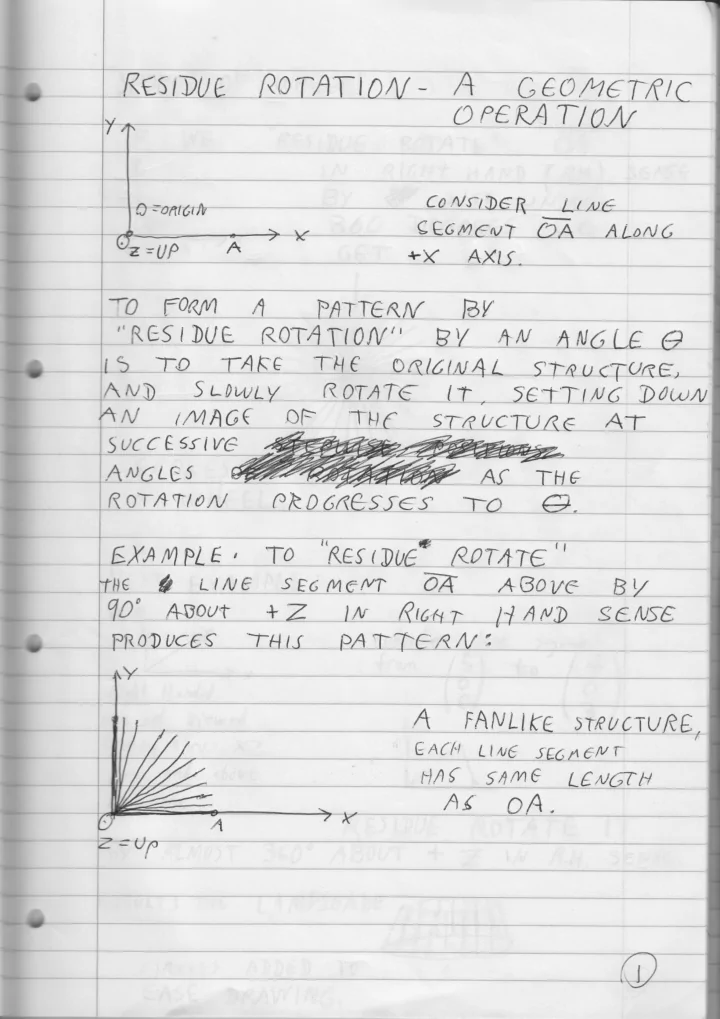 RESIDUE ROTATION - A GEOMETRIC
OPERATION
Y
O = ORIGIN
X
Z = UP
A
CONSIDER LINE
SEGMENT OA ALONG
+X AXIS.
TO FORM A PATTERN BY
"RESIDUE ROTATION" BY AN ANGLE Θ
IS TO TAKE THE ORIGINAL STRUCTURE,
AND SLOWLY ROTATE IT, SETTING DOWN
AN IMAGE OF THE STRUCTURE AT
SUCCESSIVE
ANGLES AS THE
ROTATION PROGRESSES TO Θ.
EXAMPLE. TO "RESIDUE ROTATE"
THE LINE SEGMENT OA ABOVE BY
90° ABOUT +Z IN RIGHT HAND SENSE
PRODUCES THIS PATTERN:
Y
A FANLIKE STRUCTURE,
EACH LINE SEGMENT
HAS SAME LENGTH
AS OA.
X
A
Z = UP
1